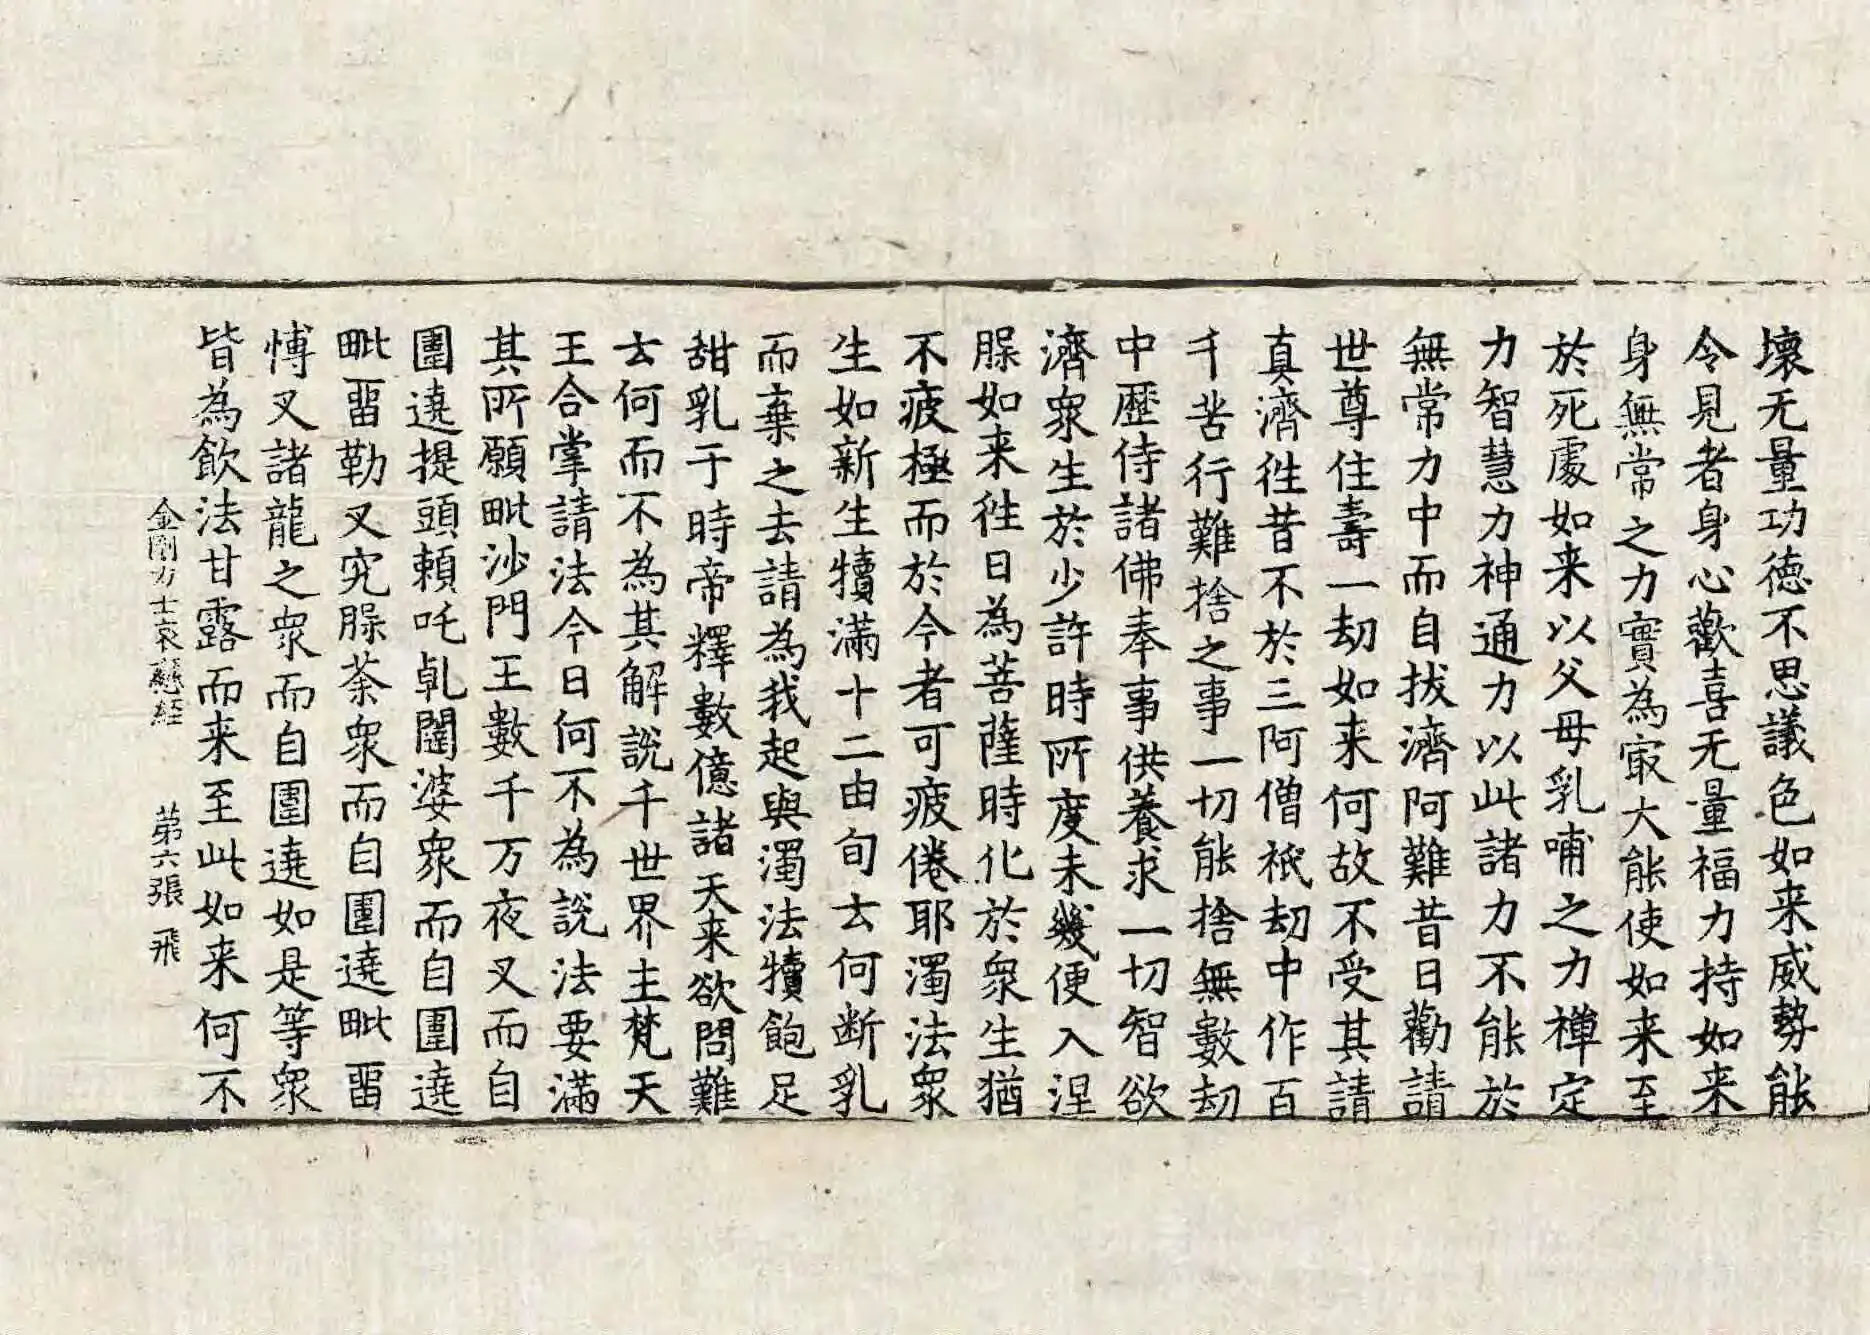 壞无量功德不思議色如来威勢能
令見者身心歡喜无量福力持如来
身無常之力實為㝡大能使如来至
於死處如来以父母乳哺之力禪定
力智慧力神通力以此諸力不能於
無常力中而自拔濟阿難昔日勸請
世尊住壽一劫如来何故不受其請
真濟徃昔不於三阿僧祇劫中作百
千苦行難捨之事一切能捨無數劫
中歷侍諸佛奉事供養求一切智欲
濟衆生於少許時所度未幾便入涅
脲如来徃日為菩薩時化於衆生猶
不疲極而於今者可疲倦耶濁法衆
生如新生犢滿十二由旬去何断乳
而棄之去請為我起與濁法犢飽足
甜乳于時帝釋數億諸天来欲問難
去何而不為其解說千世界主梵天
王合掌請法今日何不為說法要滿
其所願毗沙門王數千万夜叉而自
圍遶提頭頼吒乹闥婆衆而自圍遶
毗畱勒叉究脲荼衆而自圍遶毗畱
愽叉諸龍之衆而自圍遶如是等衆
皆為飲法甘露而来至此如来何不
金剛力士哀戀経 苐六張 飛